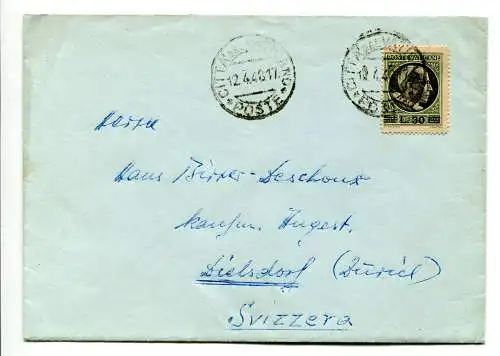 CITTÀ DEL VATICANO
12.4.46.17
POSTE
POSTE VATICANE
30
Herrn
Hans Birrer-Deschoux
kaufm. Angest.
Dielsdorf (Zürich)
Svizzera